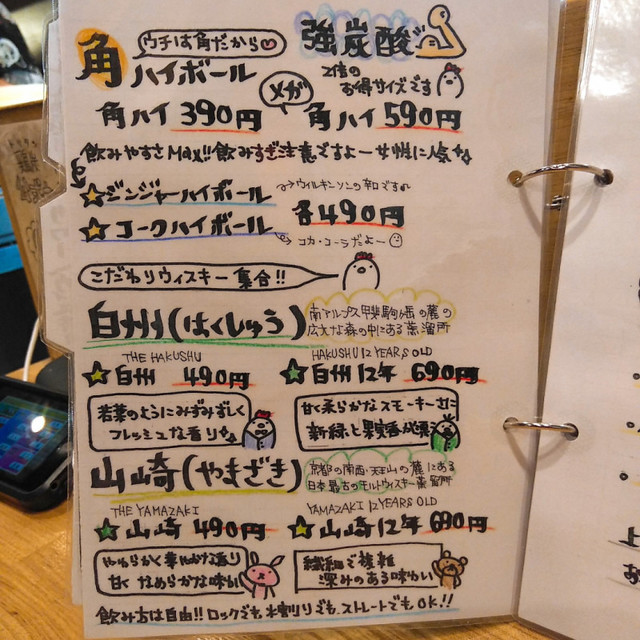 角 ウチは角だから
ハイボール
強炭酸
角ハイ 390円
メガ
2倍の
お得サイズです
角ハイ 590円
飲みやすさMax!!飲みすぎ注意ですよー女性に人気
ジンジャーハイボール
ウィルキンソンの辛口です
コークハイボール
各490円
コカ・コーラだよー
こだわりウィスキー集合!!
白州(はくしゅう)
南アルプス甲斐駒ヶ岳の麓の
広大な森の中にある蒸溜所
THE HAKUSHU
白州 490円
HAKUSHU 12 YEARS OLD
白州12年 690円
若葉のようにみずみずしく
フレッシュな香り
甘く柔らかなスモーキーさに
新緑と果実香が
山崎(やまざき)
京都の南西・天王山の麓にある
日本最古のモルトウィスキー蒸溜所
THE YAMAZAKI
山崎 490円
YAMAZAKI 12 YEARS OLD
山崎12年 690円
やわらかく華やかな香り
甘くなめらかな味わい
繊細で複雑
深みのある味わい
飲み方は自由!!ロックでも水割りでもストレートでもOK.!!
上
お